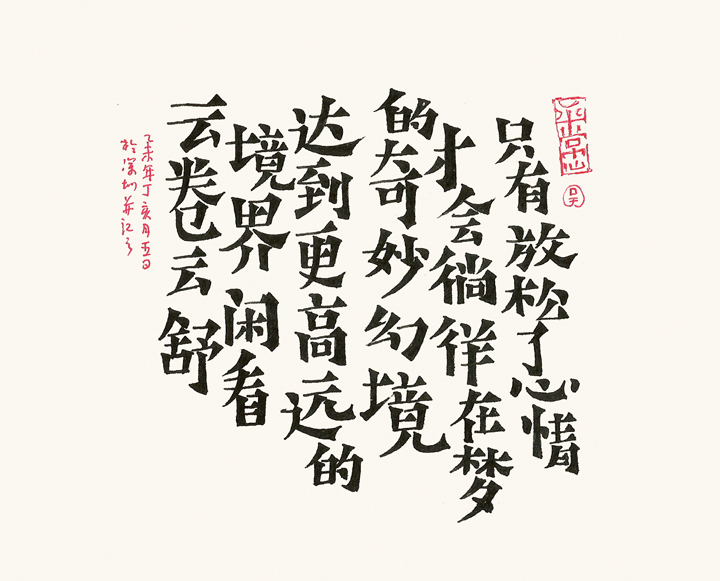 只有放松了心情
才会徜徉在梦
的奇妙幻境
达到更高远的
境界闲看
云卷云舒
乙未年丁亥月五日
於深圳并记之
吴